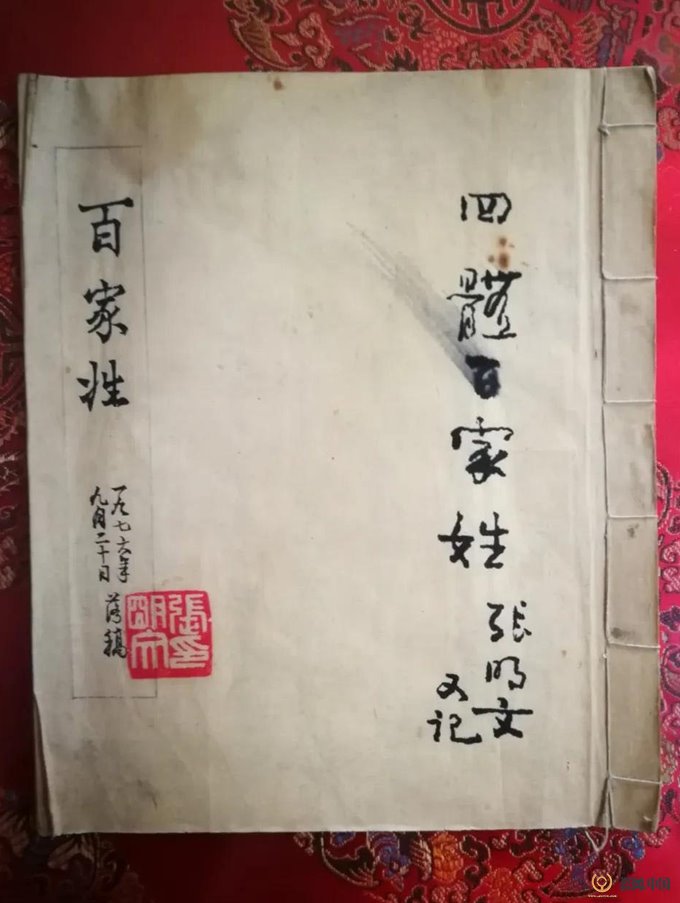 四體百家姓
張明文
又记
百家姓
一九七六年
九月二十日
落稿
張印
明文